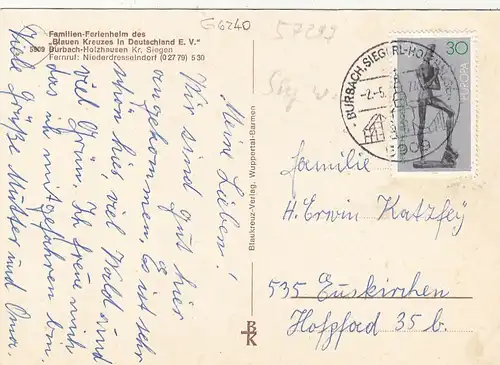 Familien-Ferienheim des
„Blauen Kreuzes in Deutschland E. V."
5909 Burbach-Holzhausen Kr. Siegen
Fernruf: Niederdresselndorf (0 27 79) 5 30
G6240
57299
Meine Lieben!
Wir sind gut hier
angekommen. Es ist sehr
schön hier, viel Wald und
viel Grün. Ich freue mich
das ich mitgefahren bin.
Viele Grüße Mutter und Oma.
Blaukreuz-Verlag, Wuppertal-Barmen
BK
BURBACH, SIEGERL-HOLZHAUSEN
-2.-5.
5909
30
EUROPA
Familie
H. Erwin Katzfey
535 Euskirchen
Hofpfad 35 b.